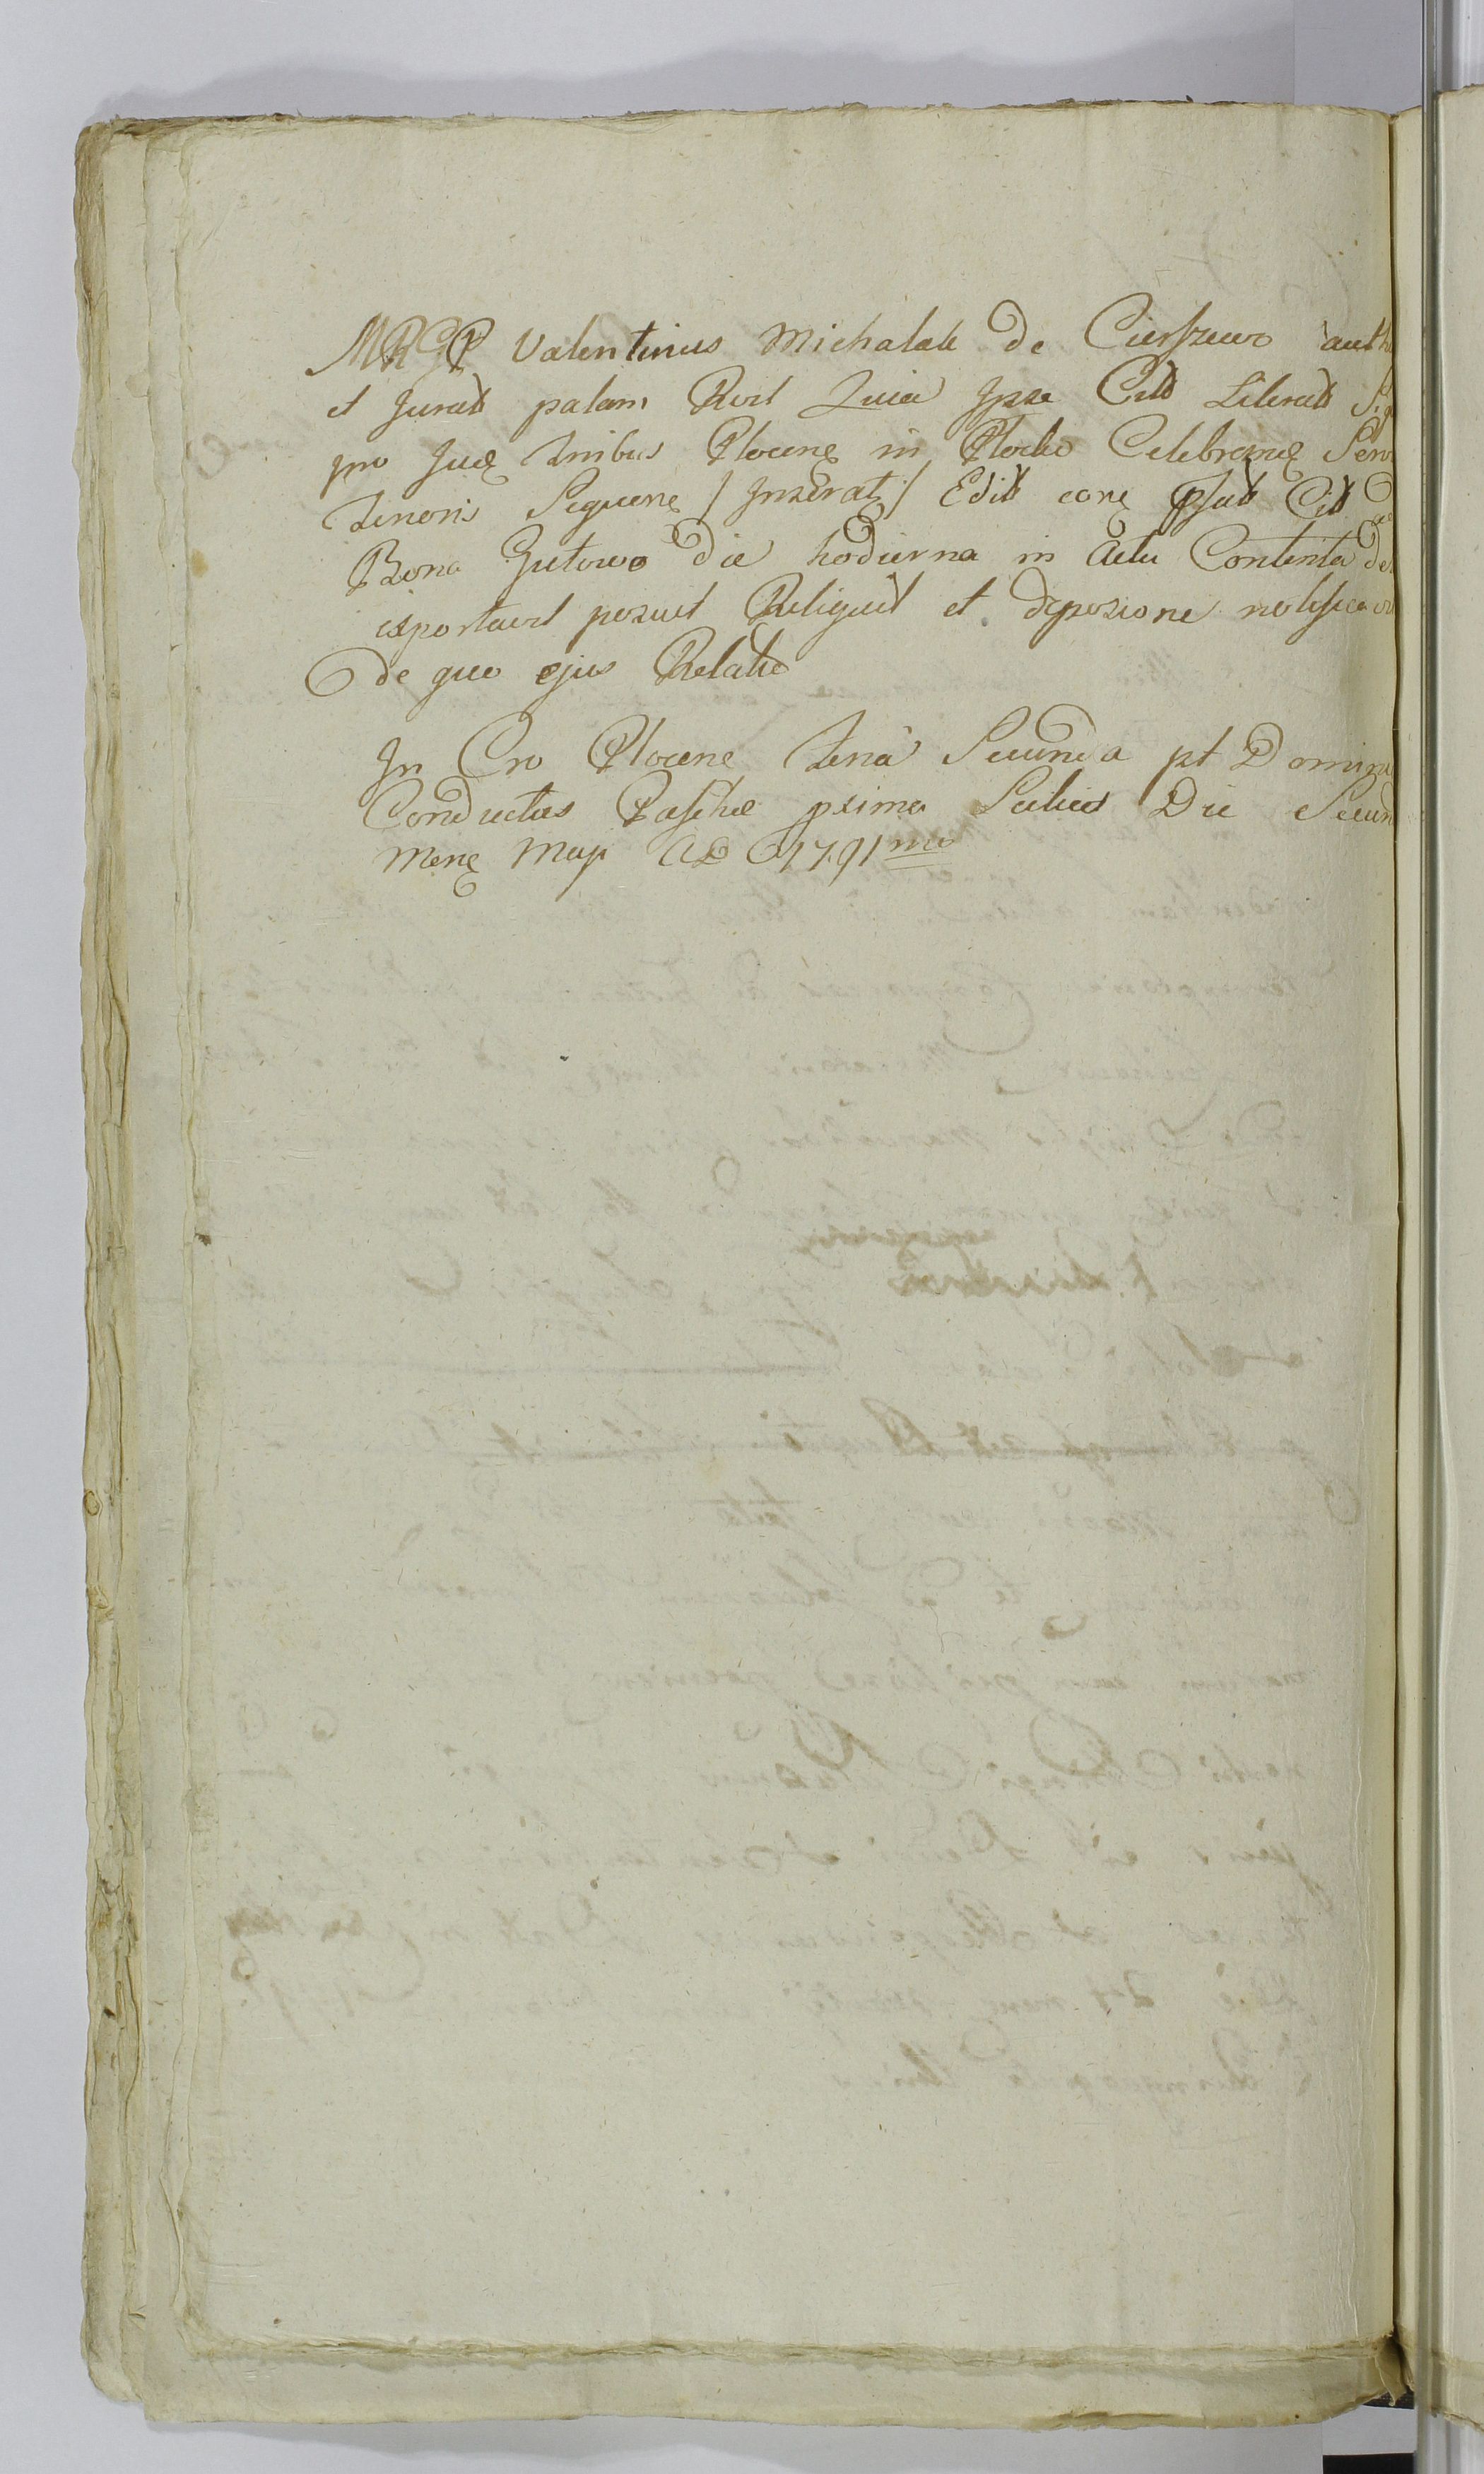 MRGP Valentinus Michalak de Cierszewo auth
et Jurat palam Rvit Quia Ipse Citt Literatt Sig
pro Jud Tnibus Plocens in Plocko Celebrans
Tenoris Sequens / Inserat / Edit
Bona Gutowo die hodierna in Actu Contenta de
isportavit posuit Reliquit et deposione notifica
de quo ejus Relatio
In Cro Plocens Feria Secunda pt Domini
Conductus Paschæ prima Scilicet Die Secun
Mens Maji AD 1791mo